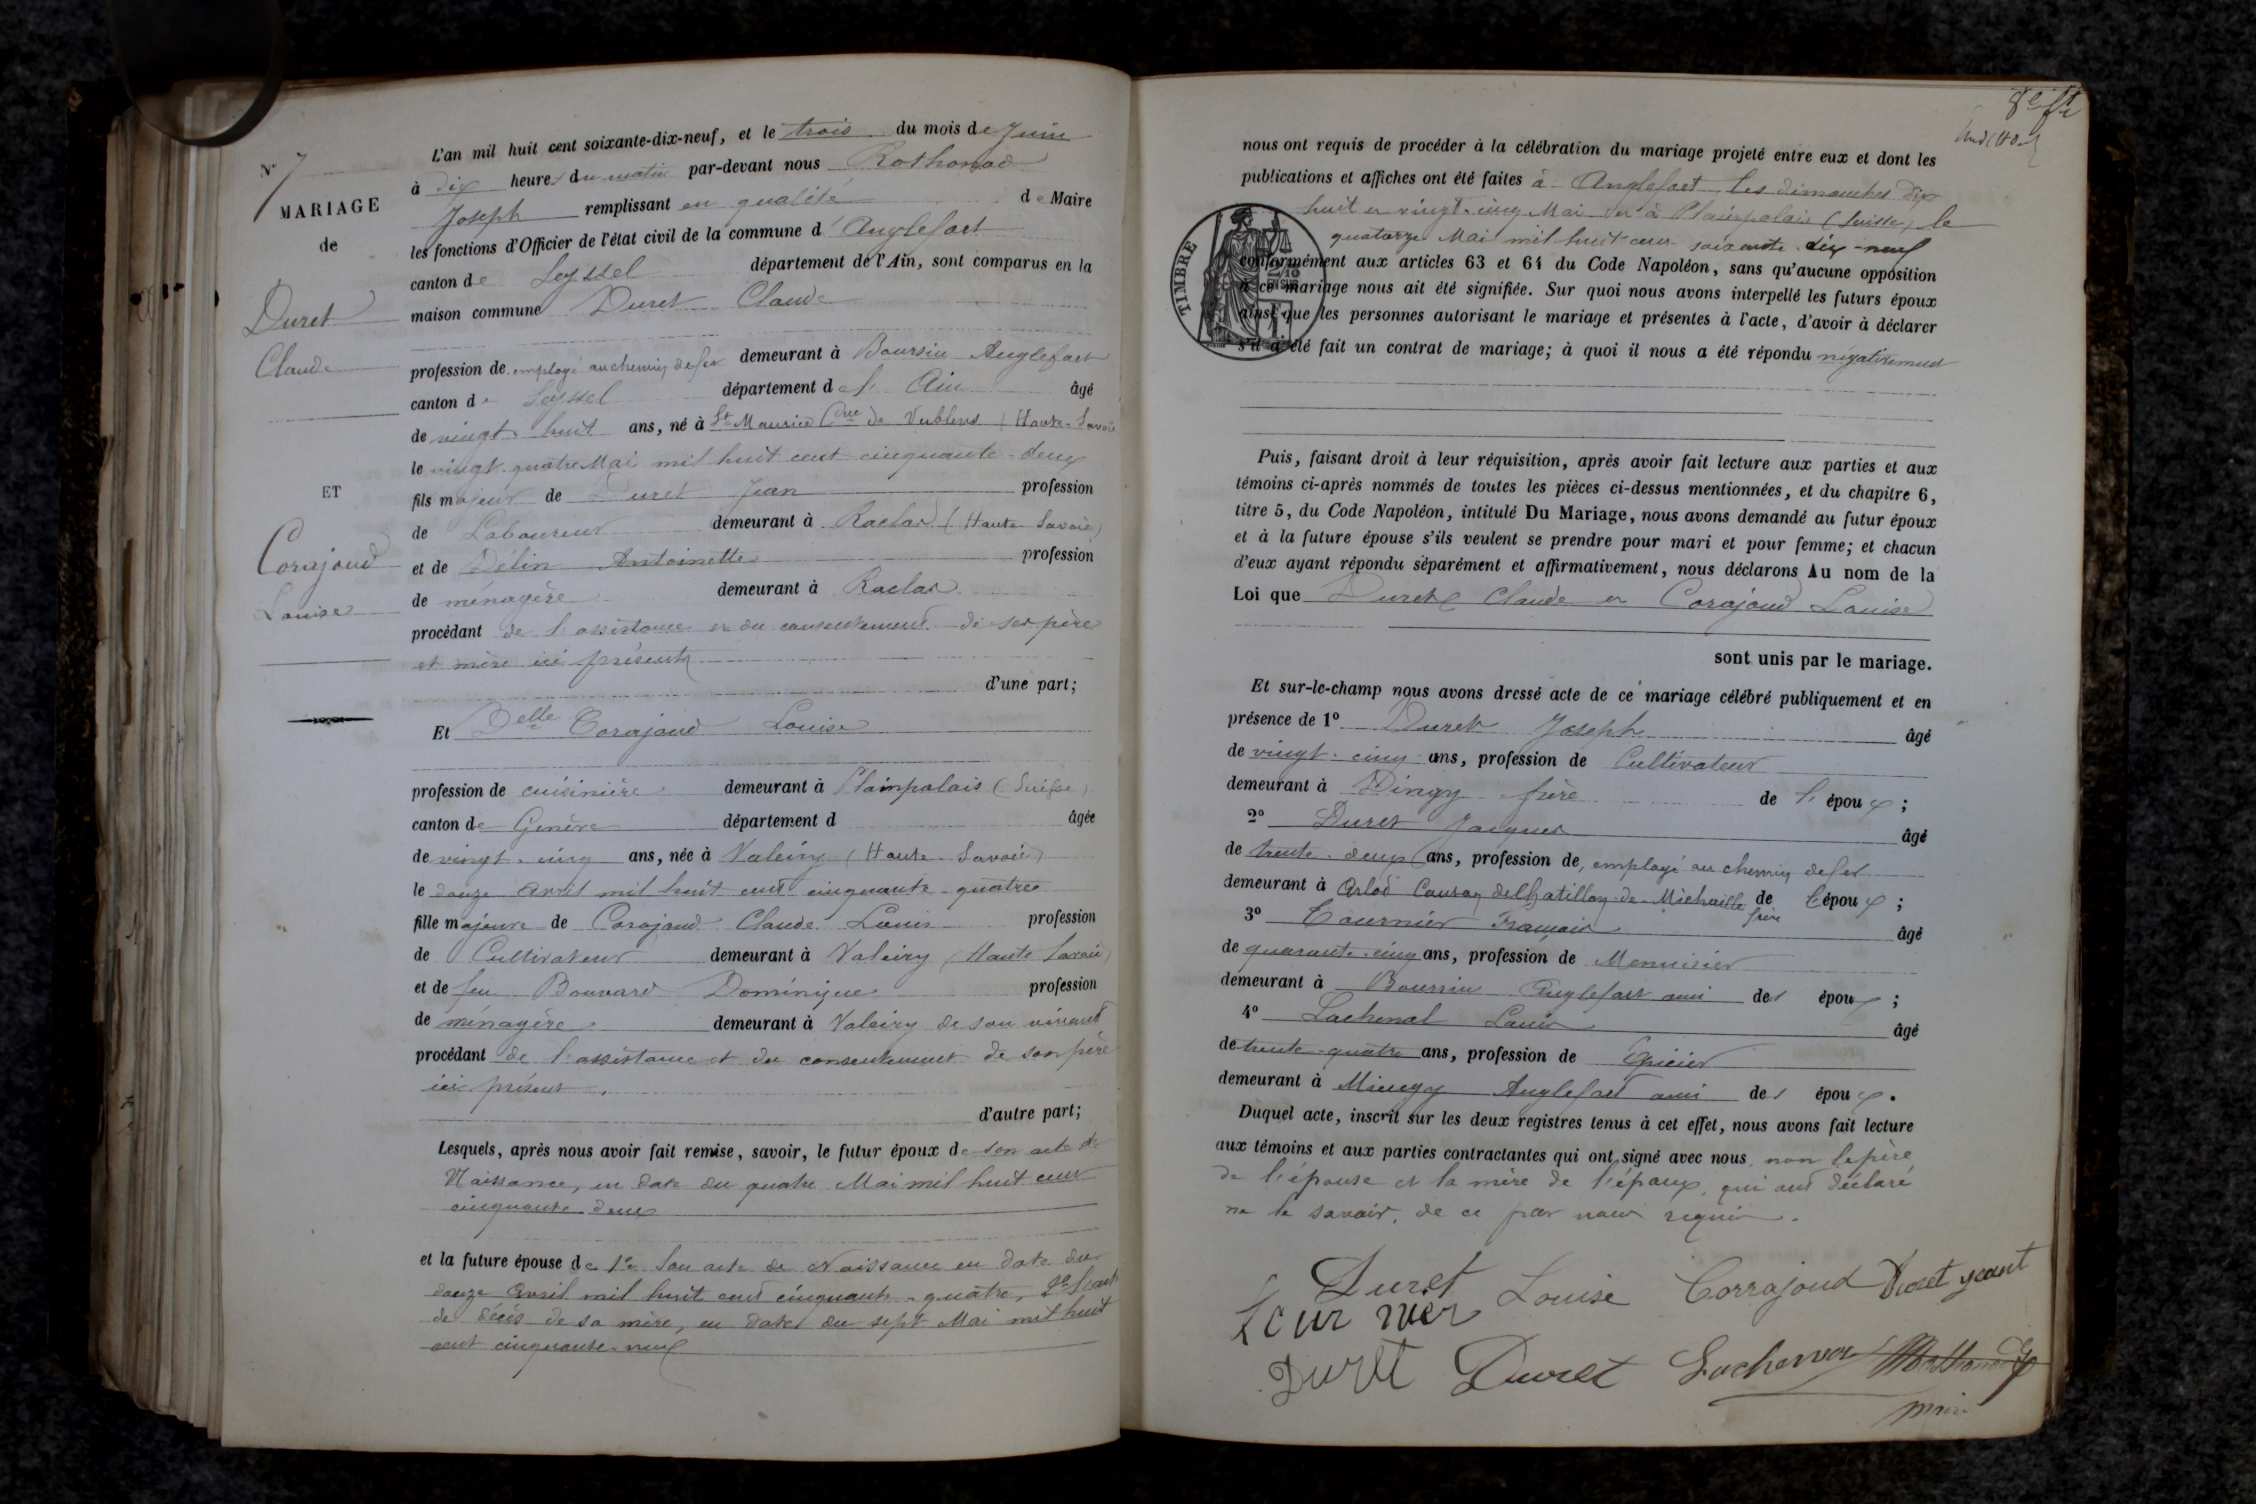 N° 7
MARIAGE
de
Duret
Claude
ET
Corajoud
Louise
L'an mil huit cent soixante-dix-neuf, et le trois du mois de Juin
à dix heures du matin par-devant nous Rothonod
Joseph remplissant en qualité de Maire
les fonctions d'Officier de l'état civil de la commune d'Anglefort
canton de Seyssel département de l'Ain, sont comparus en la
maison commune Duret Claude
profession de employé au chemin de fer demeurant à Boursin Anglefort
canton de Seyssel département de l'Ain âgé
de vingt huit ans, né à St Maurice Cne de Verblens (Haute-Savoie
le vingt-quatre Mai mil huit cent cinquante-deux
fils majeur de Duret Jean profession
de Laboureur demeurant à Raclaz (Haute Savoie)
et de Délin Antoinette profession
de ménagère demeurant à Raclaz
procédant de l'assistance et du consentement de ses père
et mère ici présents
d'une part;
Et Delle Corajoud Louise
profession de cuisinière demeurant à Plainpalais (Suisse)
canton de Genève département d âgée
de vingt-cinq ans, née à Valeiry (Haute-Savoie)
le douze avril mil huit cent cinquante-quatre
fille majeure de Corajoud Claude Louis profession
de Cultivateur demeurant à Valeiry (Haute Savoie)
et de feu Bouvard Dominique profession
de ménagère demeurant à Valeiry de son vivant
procédant de l'assistance et du consentement de son père
ici présent.
d'autre part;
Lesquels, après nous avoir fait remise, savoir, le futur époux de son acte de
Naissance, en date du quatre Mai mil huit cent
cinquante deux
et la future épouse de 1° Son acte de Naissance en date du
douze avril mil huit cent cinquante-quatre, 2° l'acte
de décès de sa mère, en date du sept Mai mil huit
cent cinquante-neuf
8e ft
nous ont requis de procéder à la célébration du mariage projeté entre eux et dont les
publications et affiches ont été faites à Anglefort, les dimanches dix
huit et vingt-cinq Mai et à Plainpalais (Suisse) le
quatorze Mai mil huit cent soixante-dix-neuf
TIMBRE
conformément aux articles 63 et 64 du Code Napoléon, sans qu'aucune opposition
à ce mariage nous ait été signifiée. Sur quoi nous avons interpellé les futurs époux
ainsi que les personnes autorisant le mariage et présentes à l'acte, d'avoir à déclarer
s'il a été fait un contrat de mariage; à quoi il nous a été répondu négativement
Puis, faisant droit à leur réquisition, après avoir fait lecture aux parties et aux
témoins ci-après nommés de toutes les pièces ci-dessus mentionnées, et du chapitre 6,
titre 5, du Code Napoléon, intitulé Du Mariage, nous avons demandé au futur époux
et à la future épouse s'ils veulent se prendre pour mari et pour femme; et chacun
d'eux ayant répondu séparément et affirmativement, nous déclarons Au nom de la
Loi que Duret Claude et Corajoud Louise
sont unis par le mariage.
Et sur-le-champ nous avons dressé acte de ce mariage célébré publiquement et en
présence de 1° Duret Joseph âgé
de vingt-cinq ans, profession de Cultivateur
demeurant à Dingy frère de l'époux;
2° Duret Jacques âgé
de trente-deux ans, profession de employé au chemin de fer
demeurant à Arlod Canton de Chatillon-de-Michaille frère de l'époux;
3° Tournier François âgé
de quarante-cinq ans, profession de Menuisier
demeurant à Boursin Anglefort ami des époux;
4° Lachenal Louis âgé
de trente-quatre ans, profession de Epicier
demeurant à Mieugy Anglefort ami des époux.
Duquel acte, inscrit sur les deux registres tenus à cet effet, nous avons fait lecture
aux témoins et aux parties contractantes qui ont signé avec nous, non le père
de l'épouse et la mère de l'époux, qui ont déclaré
ne le savoir, de ce par nous requis.
Duret Louise Corrajoud Duret
tournier
Duret Duret Lachenal Rothonod
Maire